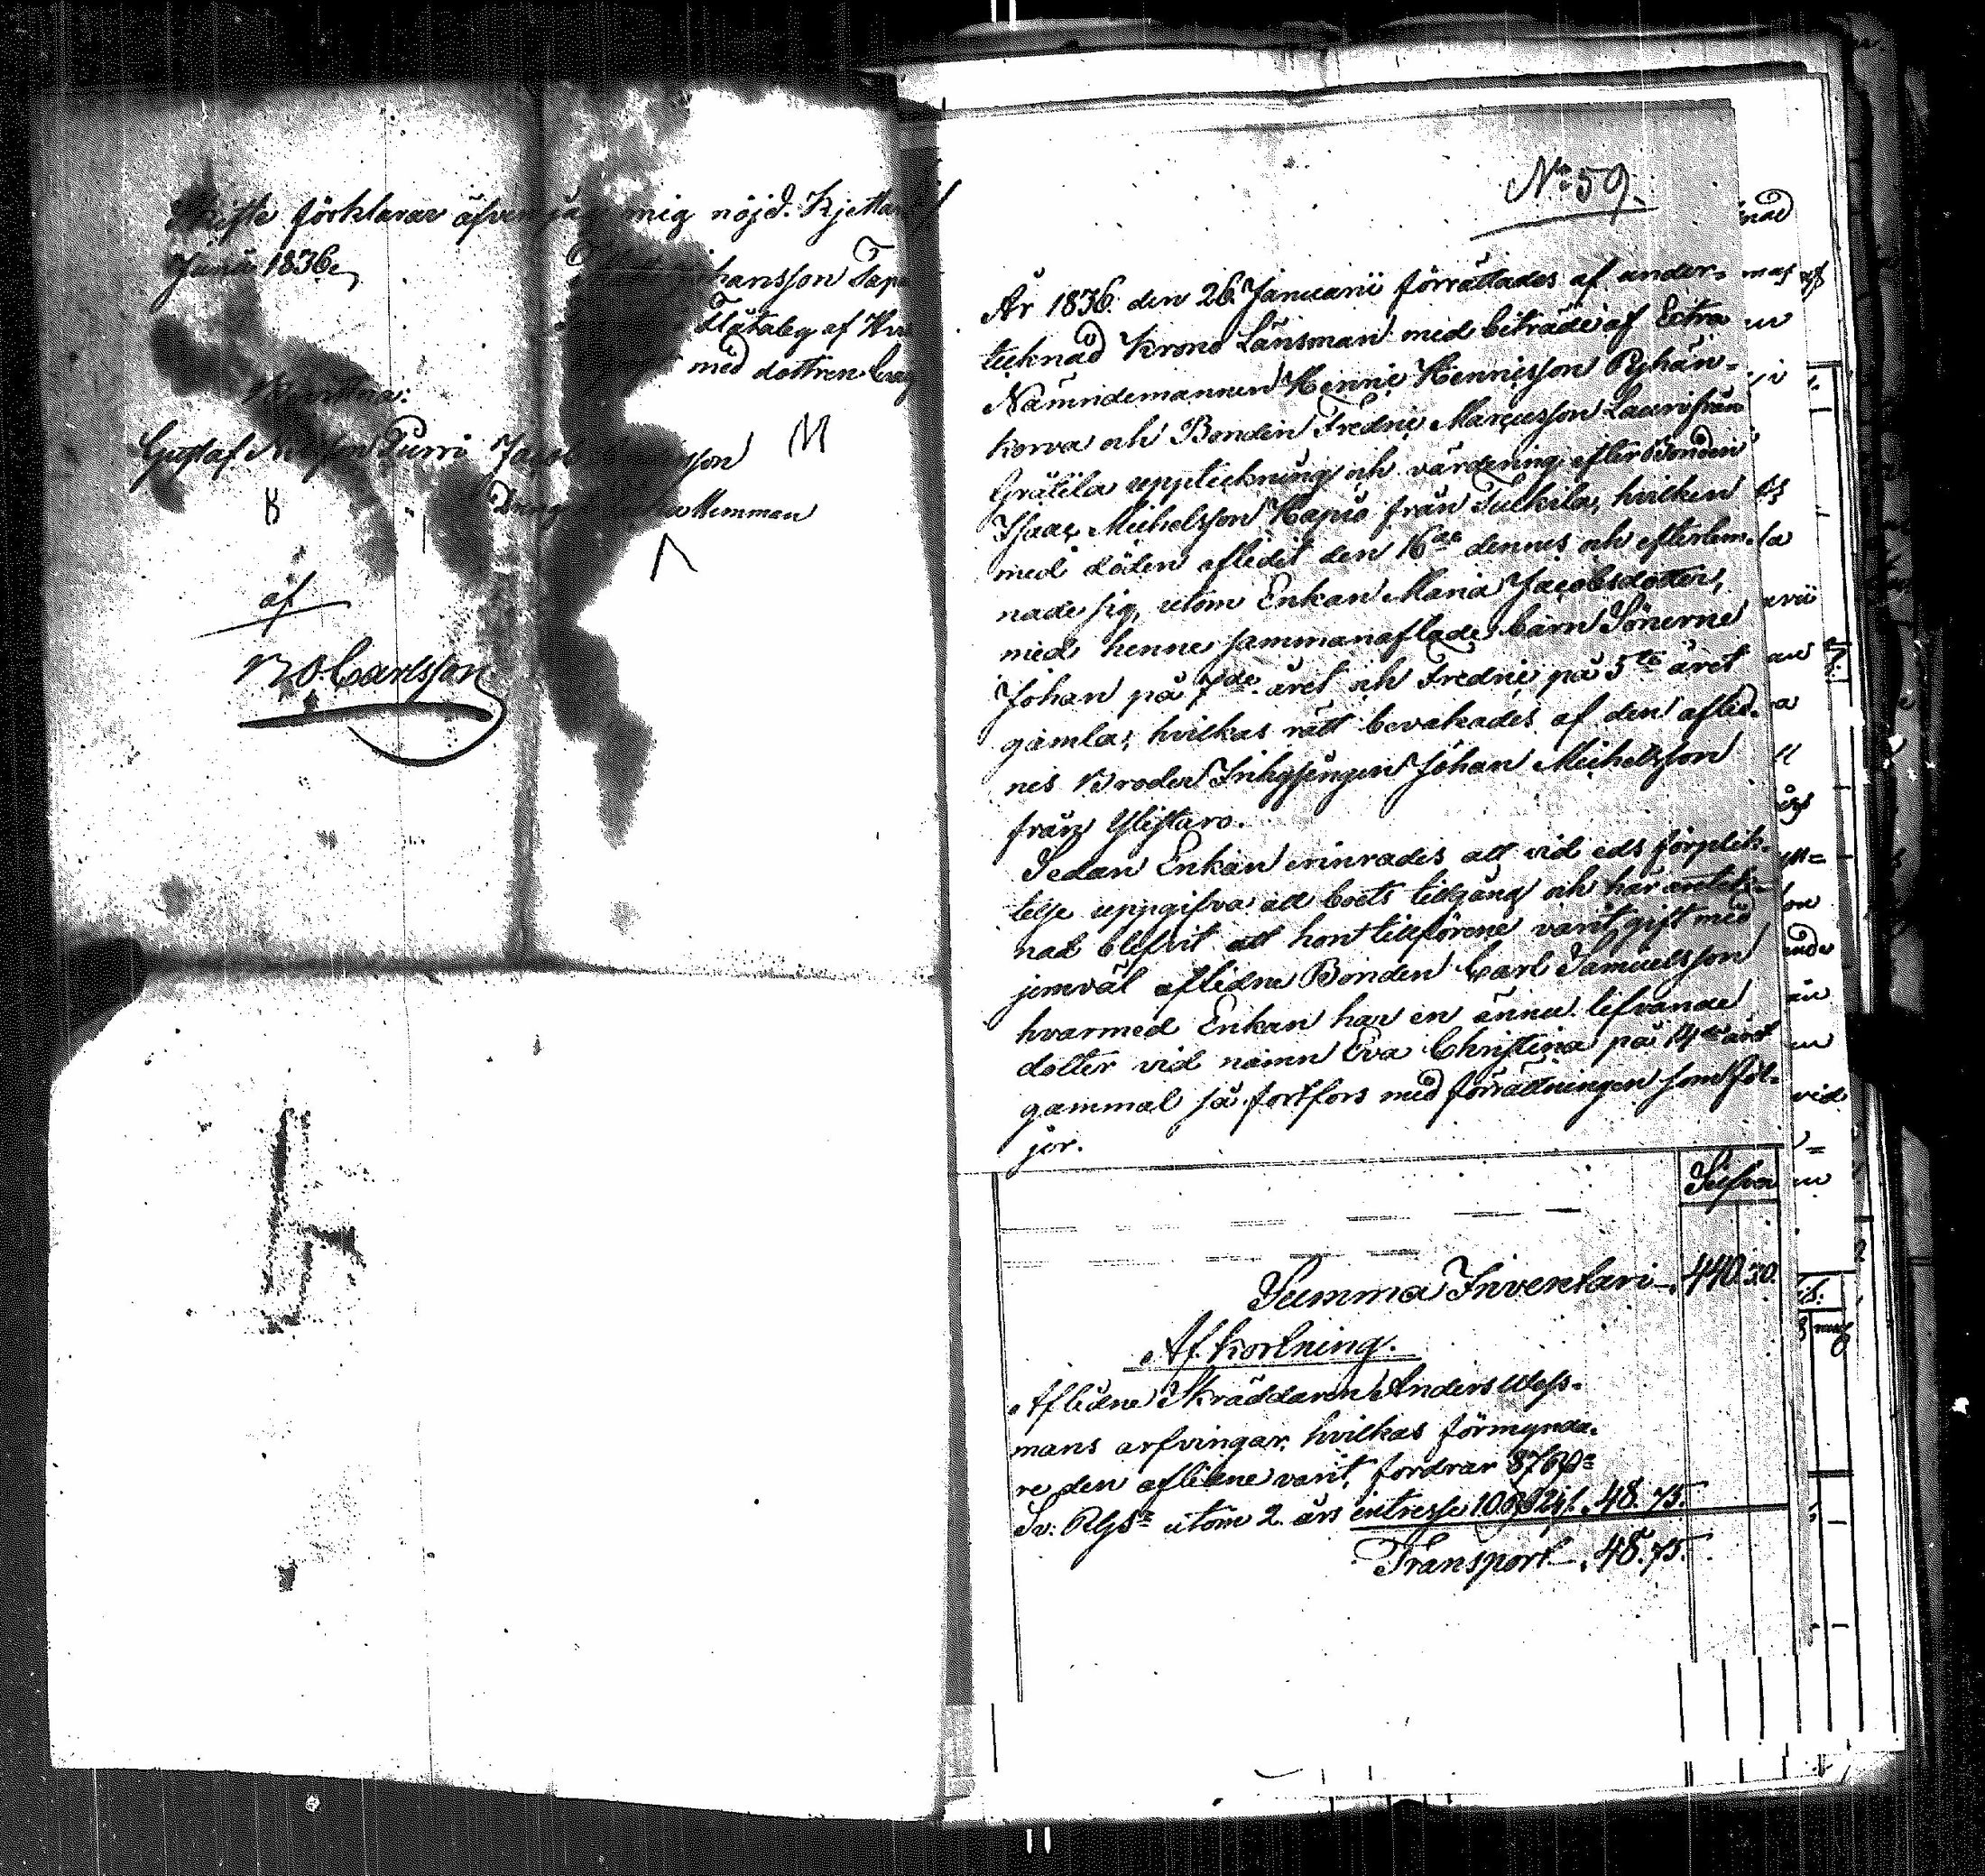 Skifte förklarar äfven jag mig nöjd. Kjetta
Junii 1836.
Johansson
Flätaleg af
med dottren
Gustaf Nilsson Purri Jacob
Memman
af
B O Carlsson
No 59.
År 1836 den 26 Januarii förrättades af under-
tecknad Krono Länsman med biträde af Extra
Nämndemannen Henric Henricsson Ryhän-
korva och Bonden Fredric Marcusson Lauri från
Gräfila uppteckning och värdering efter Bonden
Isaac Michelsson Hapio från Tulkila, hvilken
med döden aflidit den 16de dennes och efterlem-
nade sig, utom Enkan Maria Jacobsdotter,
med henne sammanaflade barn Sönerne
Johan på 7de året och Fredric på 5te året
gamla, hvilkas rätt bevakades af den aflid-
nes Broder Inhysingen Johan Michelsson
från Ylistaro.
Sedan Enkan erinrades att vid eds förplik-
telse uppgifva all boets tillgång och här anteck-
nad blefvit att hon tillförene varit gift med
jemväl aflidne Bonden Carl Samuelsson
hvarmed Enkan har en ännu lefvande
dotter vid namn Eva Christina på 14de året
gammal så fortfors med förrättningen som föl-
jer.
Silfver
Summa Inventarii 440.30.
Afkortning.
Aflidne Skräddaren Anders Wess-
mans arfvingar, hvilkas förmynda-
re den aflidne varit, fordrar 87
Sv. Rgs utom 2 års intresse 10 48.75.
Transport 48.75.